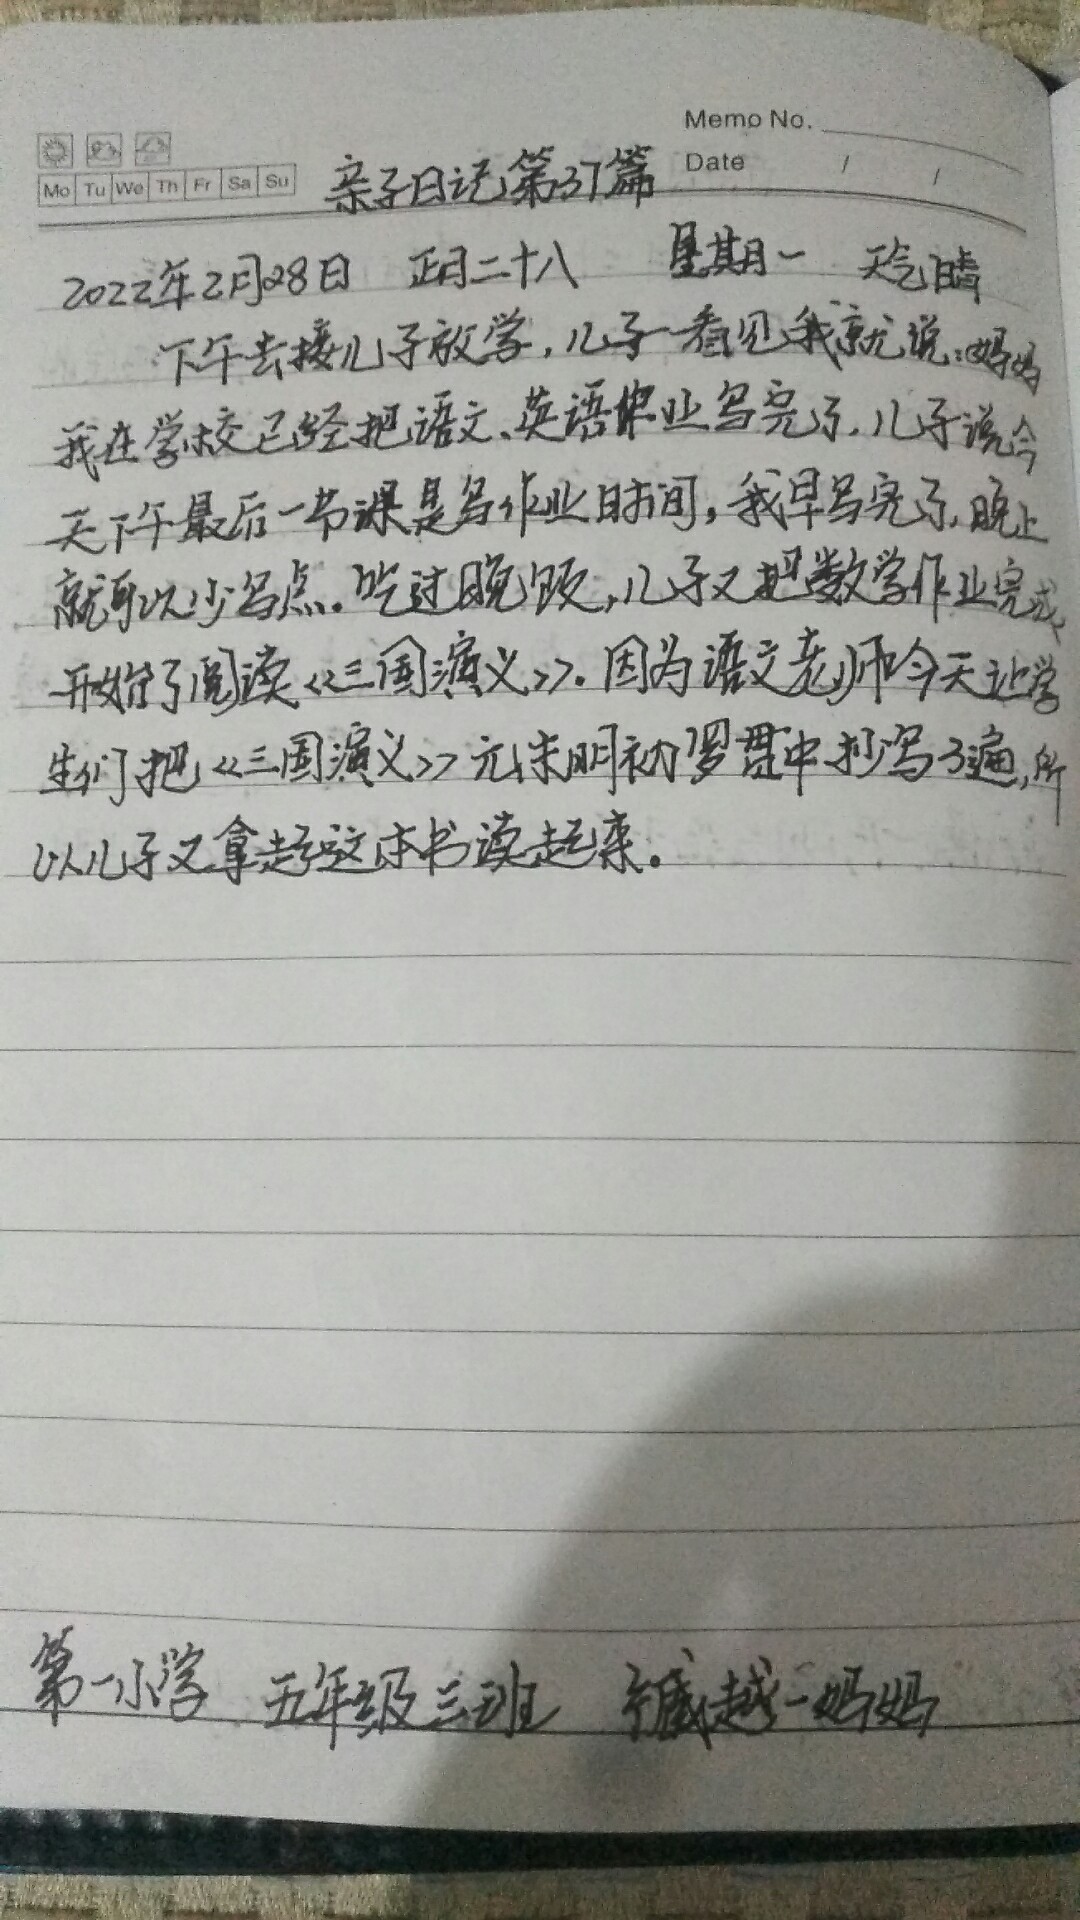 Memo No.
Date / /
Mo Tu We Th Fr Sa Su
亲子日记第37篇
2022年2月28日 正月二十八 星期一 天气晴
下午去接儿子放学,儿子一看见我就说:妈妈
我在学校已经把语文、英语作业写完了,儿子说今
天下午最后一节课是写作业时间,我早写完了,晚上
就可以少写点。吃过晚饭,儿子又把数学作业完成,
开始了阅读《三国演义》。因为语文老师今天让学
生们把《三国演义》元末明初罗贯中抄写了遍,所
以儿子又拿起这本书读起来。
第一小学 五年级三班 越一妈妈